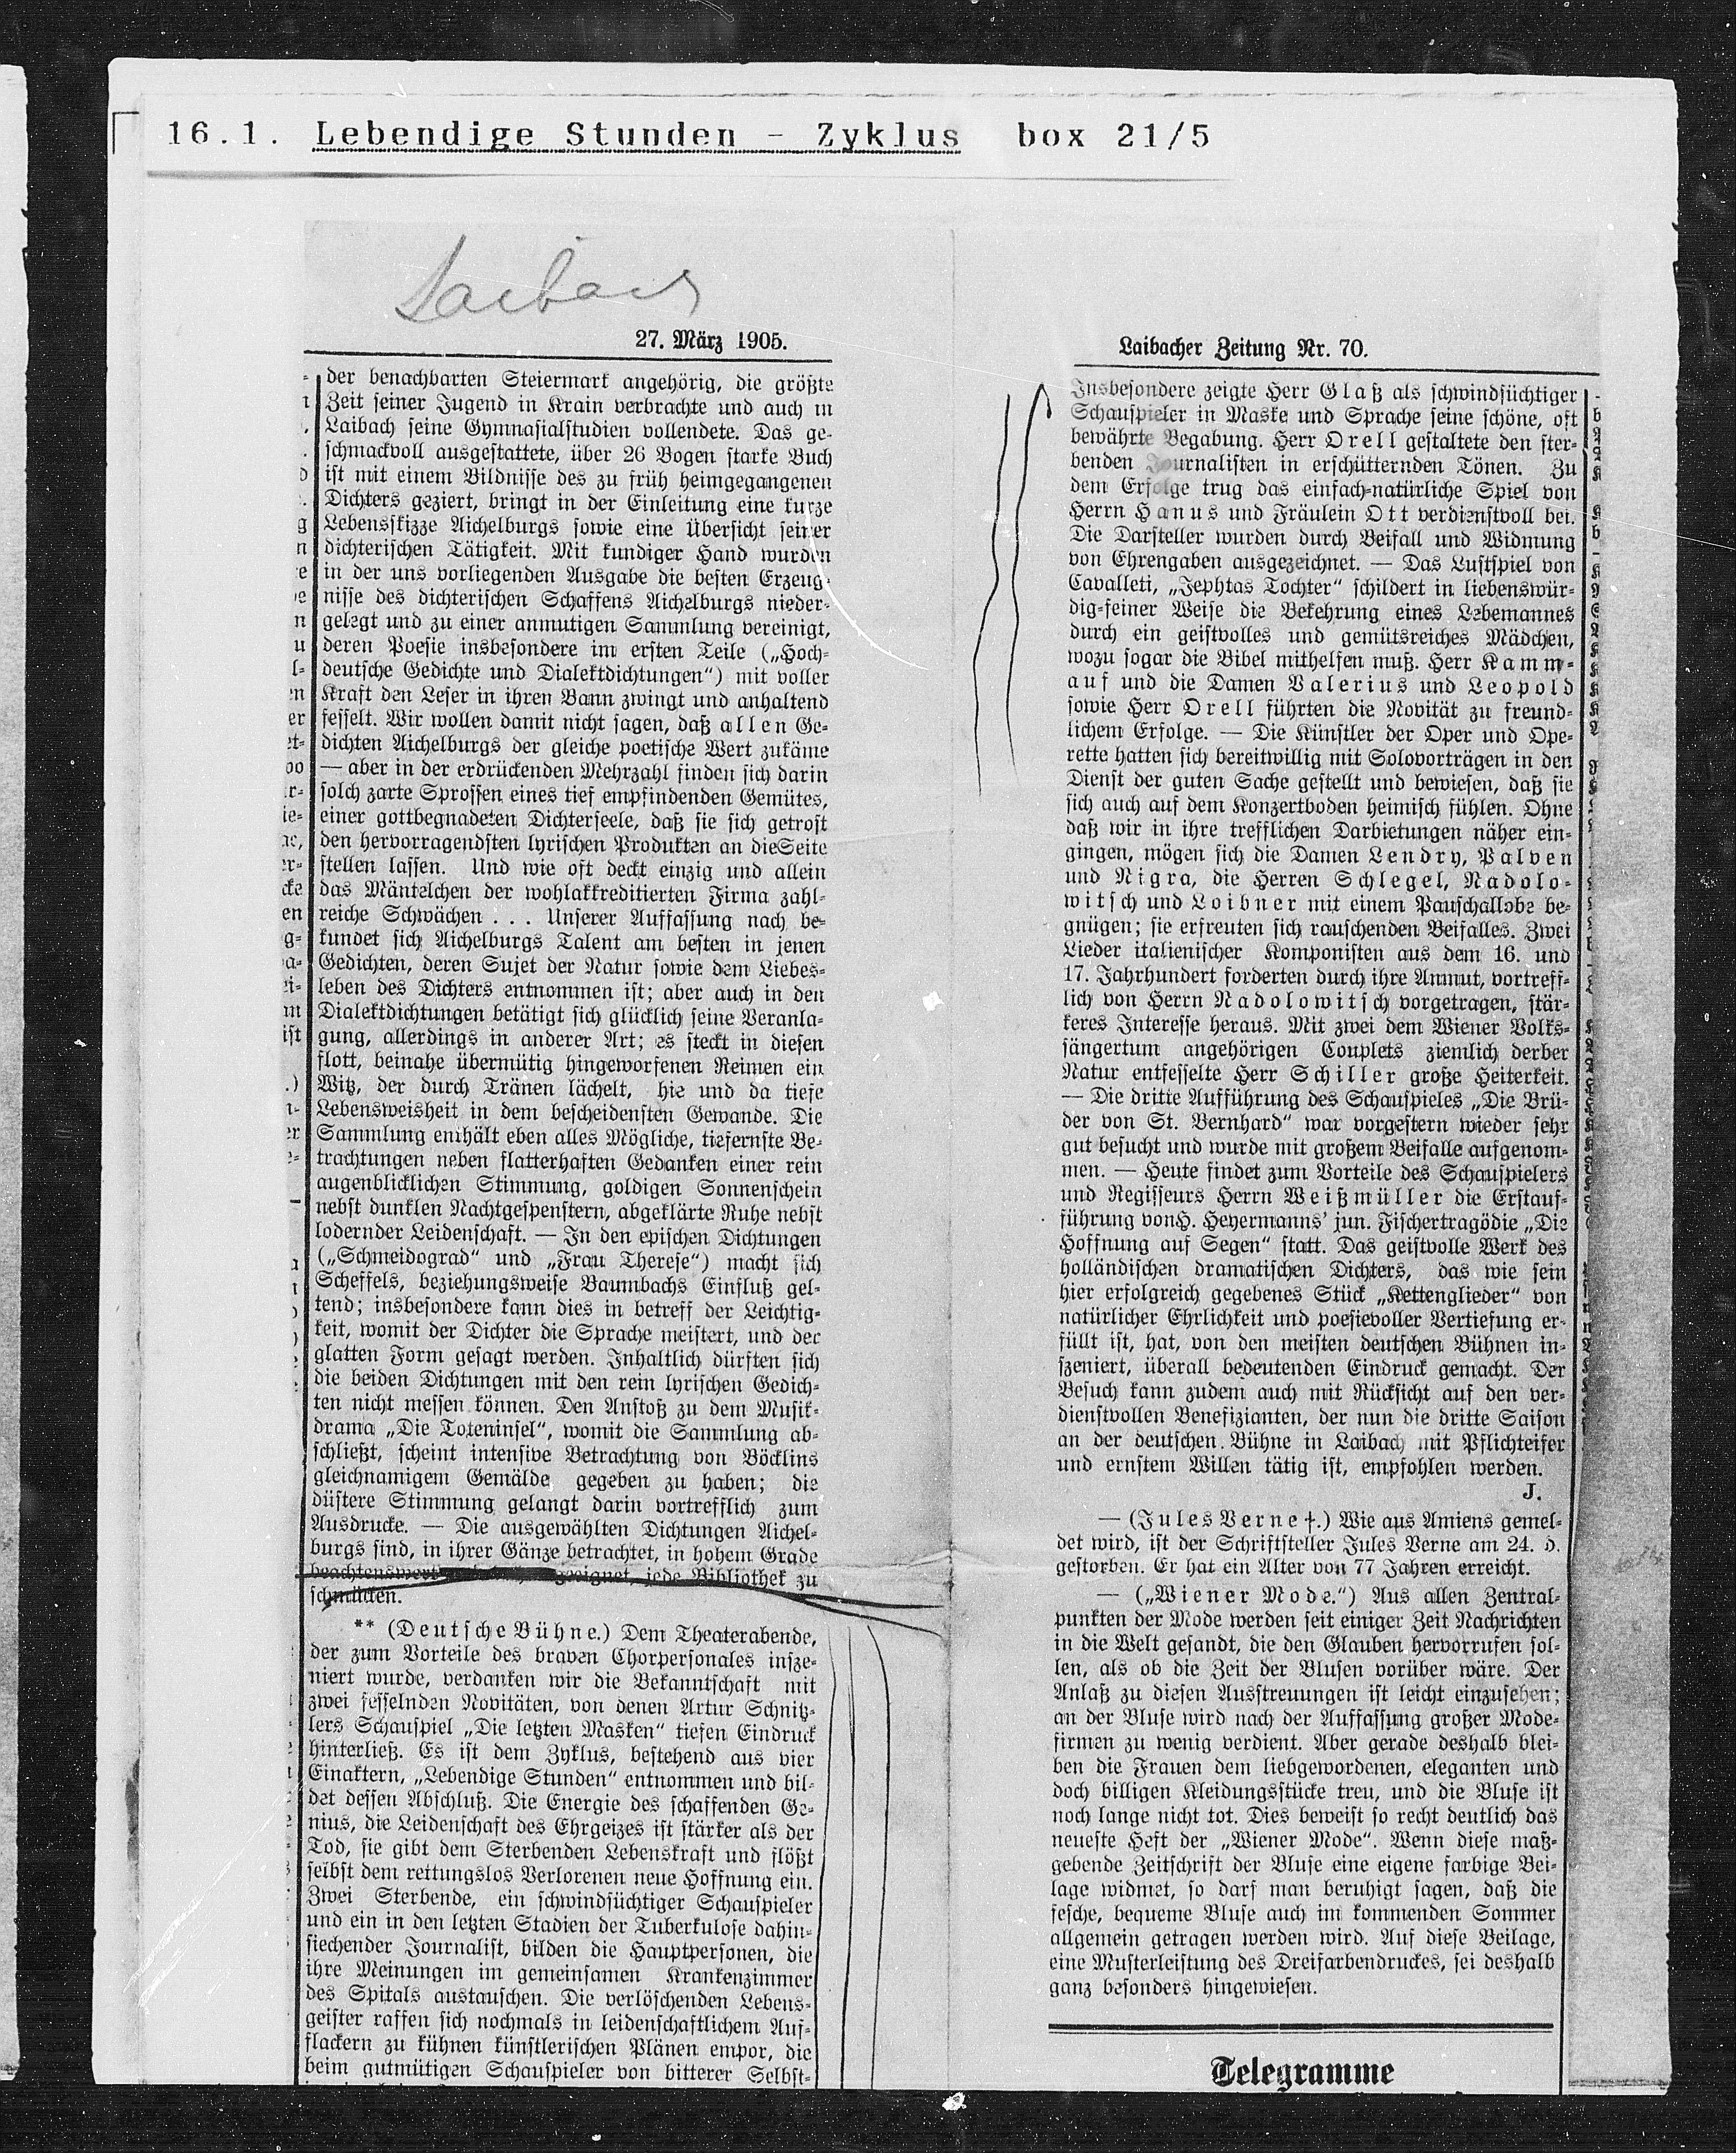 16.1. Lebendige Stunden - Zyklus box 21/5
Laibach
27. März 1905.
der benachbarten Steiermark angehörig, die größte
Zeit seiner Jugend in Krain verbrachte und auch in
Laibach seine Gymnasialstudien vollendete. Das ge-
schmackvoll ausgestattete, über 26 Bogen starke Buch
ist mit einem Bildnisse des zu früh heimgegangenen
Dichters geziert, bringt in der Einleitung eine kurze
Lebensskizze Aichelburgs sowie eine Übersicht seiner
dichterischen Tätigkeit. Mit kundiger Hand wurden
in der uns vorliegenden Ausgabe die besten Erzeug-
nisse des dichterischen Schaffens Aichelburgs nieder-
gelegt und zu einer anmutigen Sammlung vereinigt,
deren Poesie insbesondere im ersten Teile („Hoch-
deutsche Gedichte und Dialektdichtungen“) mit voller
Kraft den Leser in ihren Bann zwingt und anhaltend
fesselt. Wir wollen damit nicht sagen, daß allen Ge-
dichten Aichelburgs der gleiche poetische Wert zukäme
— aber in der erdrückenden Mehrzahl finden sich darin
solch zarte Sprossen eines tief empfindenden Gemütes,
einer gottbegnadeten Dichterseele, daß sie sich getrost
den hervorragendsten lyrischen Produkten an dieSeite
stellen lassen. Und wie oft deckt einzig und allein
das Mäntelchen der wohlakkreditierten Firma zahl-
reiche Schwächen . . . Unserer Auffassung nach be-
kundet sich Aichelburgs Talent am besten in jenen
Gedichten, deren Sujet der Natur sowie dem Liebes-
leben des Dichters entnommen ist; aber auch in den
Dialektdichtungen betätigt sich glücklich seine Veranla-
gung, allerdings in anderer Art; es steckt in diesen
flott, beinahe übermütig hingeworfenen Reimen ein
Witz, der durch Tränen lächelt, hie und da tiefe
Lebensweisheit in dem bescheidensten Gewande. Die
Sammlung enthält eben alles Mögliche, tiefernste Be-
trachtungen neben flatterhaften Gedanken einer rein
augenblicklichen Stimmung, goldigen Sonnenschein
nebst dunklen Nachtgespenstern, abgeklärte Ruhe nebst
lodernder Leidenschaft. — In den epischen Dichtungen
(„Schmeidograd“ und „Frau Therese“) macht sich
Scheffels, beziehungsweise Baumbachs Einfluß gel-
tend; insbesondere kann dies in betreff der Leichtig-
keit, womit der Dichter die Sprache meistert, und der
glatten Form gesagt werden. Inhaltlich dürften sich
die beiden Dichtungen mit den rein lyrischen Gedich-
ten nicht messen können. Den Anstoß zu dem Musik-
drama „Die Toteninsel“, womit die Sammlung ab-
schließt, scheint intensive Betrachtung von Böcklins
gleichnamigem Gemälde gegeben zu haben; die
düstere Stimmung gelangt darin vortrefflich zum
Ausdrucke. — Die ausgewählten Dichtungen Aichel-
burgs sind, in ihrer Gänze betrachtet, in hohem Grade
beachtenswert geeignet, jede Bibliothek zu
schmücken.
** (Deutsche Bühne.) Dem Theaterabende,
der zum Vorteile des braven Chorpersonales insze-
niert wurde, verdanken wir die Bekanntschaft mit
zwei fesselnden Novitäten, von denen Artur Schnitz-
lers Schauspiel „Die letzten Masken“ tiefen Eindruck
hinterließ. Es ist dem Zyklus, bestehend aus vier
Einaktern, „Lebendige Stunden“ entnommen und bil-
det dessen Abschluß. Die Energie des schaffenden Ge-
nius, die Leidenschaft des Ehrgeizes ist stärker als der
Tod, sie gibt dem Sterbenden Lebenskraft und flößt
selbst dem rettungslos Verlorenen neue Hoffnung ein.
Zwei Sterbende, ein schwindsüchtiger Schauspieler
und ein in den letzten Stadien der Tuberkulose dahin-
siechender Journalist, bilden die Hauptpersonen, die
ihre Meinungen im gemeinsamen Krankenzimmer
des Spitals austauschen. Die verlöschenden Lebens-
geister raffen sich nochmals in leidenschaftlichem Auf-
flackern zu kühnen künstlerischen Plänen empor, die
beim gutmütigen Schauspieler von bitterer Selbst-
Laibacher Zeitung Nr. 70.
Insbesondere zeigte Herr Glaß als schwindsüchtiger
Schauspieler in Maske und Sprache seine schöne, oft
bewährte Begabung. Herr Orell gestaltete den ster-
benden Journalisten in erschütternden Tönen. Zu
dem Erfolge trug das einfach-natürliche Spiel von
Herrn Hanus und Fräulein Ott verdienstvoll bei.
Die Darsteller wurden durch Beifall und Widmung
von Ehrengaben ausgezeichnet. — Das Lustspiel von
Cavalleti, „Jephtas Tochter“ schildert in liebenswür-
dig-feiner Weise die Bekehrung eines Lebemannes
durch ein geistvolles und gemütsreiches Mädchen,
wozu sogar die Bibel mithelfen muß. Herr Kamm-
auf und die Damen Valerius und Leopold
sowie Herr Orell führten die Novität zu freund-
lichem Erfolge. — Die Künstler der Oper und Ope-
rette hatten sich bereitwillig mit Solovorträgen in den
Dienst der guten Sache gestellt und bewiesen, daß sie
sich auch auf dem Konzertboden heimisch fühlen. Ohne
daß wir in ihre trefflichen Darbietungen näher ein-
gingen, mögen sich die Damen Lendry, Palven
und Nigra, die Herren Schlegel, Nadolo-
witsch und Loibner mit einem Pauschallobe be-
gnügen; sie erfreuten sich rauschenden Beifalles. Zwei
Lieder italienischer Komponisten aus dem 16. und
17. Jahrhundert forderten durch ihre Anmut, vortreff-
lich von Herrn Nadolowitsch vorgetragen, stär-
keres Interesse heraus. Mit zwei dem Wiener Volks-
sängertum angehörigen Couplets ziemlich derber
Natur entfesselte Herr Schiller große Heiterkeit.
— Die dritte Aufführung des Schauspieles „Die Brü-
der von St. Bernhard“ war vorgestern wieder sehr
gut besucht und wurde mit großem Beifalle aufgenom-
men. — Heute findet zum Vorteile des Schauspielers
und Regisseurs Herrn Weißmüller die Erstauf-
führung vonH. Heyermanns' jun. Fischertragödie „Die
Hoffnung auf Segen“ statt. Das geistvolle Werk des
holländischen dramatischen Dichters, das wie sein
hier erfolgreich gegebenes Stück „Kettenglieder“ von
natürlicher Ehrlichkeit und poesievoller Vertiefung er-
füllt ist, hat, von den meisten deutschen Bühnen in-
szeniert, überall bedeutenden Eindruck gemacht. Der
Besuch kann zudem auch mit Rücksicht auf den ver-
dienstvollen Benefizianten, der nun die dritte Saison
an der deutschen Bühne in Laibach mit Pflichteifer
und ernstem Willen tätig ist, empfohlen werden.
J.
— (Jules Verne †.) Wie aus Amiens gemel-
det wird, ist der Schriftsteller Jules Verne am 24. d.
gestorben. Er hat ein Alter von 77 Jahren erreicht.
— („Wiener Mode.“) Aus allen Zentral-
punkten der Mode werden seit einiger Zeit Nachrichten
in die Welt gesandt, die den Glauben hervorrufen sol-
len, als ob die Zeit der Blusen vorüber wäre. Der
Anlaß zu diesen Ausstreuungen ist leicht einzusehen;
an der Bluse wird nach der Auffassung großer Mode-
firmen zu wenig verdient. Aber gerade deshalb blei-
ben die Frauen dem liebgewordenen, eleganten und
doch billigen Kleidungsstücke treu, und die Bluse ist
noch lange nicht tot. Dies beweist so recht deutlich das
neueste Heft der „Wiener Mode“. Wenn diese maß-
gebende Zeitschrift der Bluse eine eigene farbige Bei-
lage widmet, so darf man beruhigt sagen, daß die
fesche, bequeme Bluse auch im kommenden Sommer
allgemein getragen werden wird. Auf diese Beilage,
eine Musterleistung des Dreifarbendruckes, sei deshalb
ganz besonders hingewiesen.
Telegramme